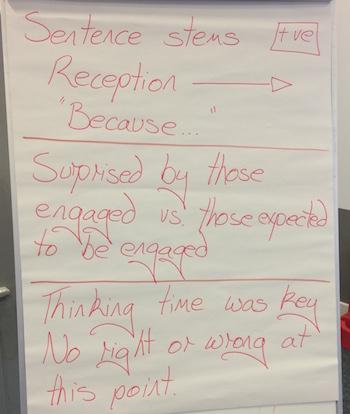 Sentence stems +ve
Reception →
"Because..."
Surprised by those
engaged vs. those expected
to be engaged
Thinking time was key
No right or wrong at
this point.